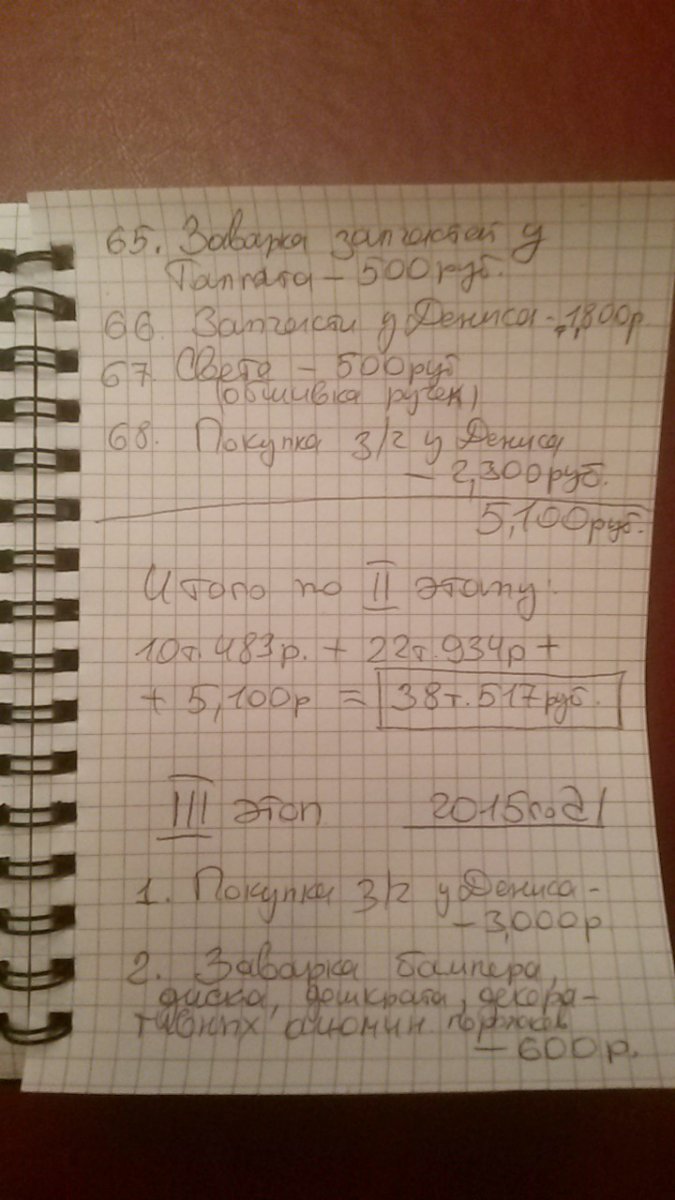 65. Заварка запчастей у
Талгата - 500 руб.
66. Запчасти у Дениса - 1,800р.
67. Света - 500 руб
(обшивка ручек)
68. Покупка З/Ч у Дениса
- 2,300 руб.
5,100 руб.
Итого по II этапу:
10т.483р. + 22т.934р +
+ 5,100р = 38т.517 руб.
III этап 2015год
1. Покупка З/Ч у Дениса -
- 3,000р
2. Заварка бампера,
диска, домкрата, декора-
тивных алюмин порожков
- 600р.